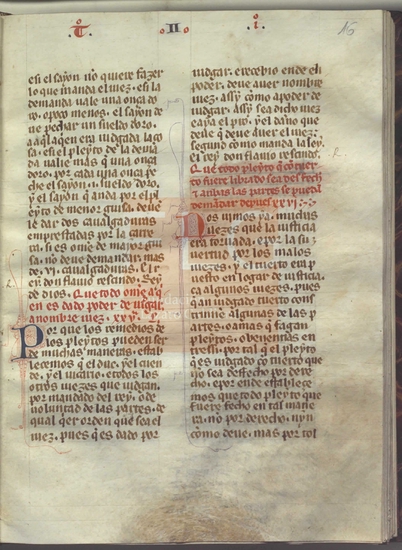 T II i
16
e si el sayon no quiere fazer
lo que manda el iuez. e si la
demanda uale una onça do
ro. o poco menos. el sayon de
ue pechar un sueldo doro.
a aq̃l a qen era iudgada la co
sa. e si el pleyto de la deman
da ualie mas q̃ una onça
doro. por cada una onça pe
che el sayon .i. sueldo doro.
y el sayon q̃ anda por el ple
yto de menor guisa. deue
le dar dos caualgaduras
emprestadas por la carre
ra. e si es ome de mayor gui
sa. no deue demandar mas
de .vi. caualgaduras. El r
ey don flauio rescindo. Rey
de dios. Que todo ome a q̃
en es dado poder de iudgar
a nombre iuez. xxv.
Por que los remedios de
los pleytos pueden ser
de muchas maneras. estab
lecemos q̃ el duc. y el cuen
de. y el uicario. e todos los
otros iuezes que iudgan.
por mandado del rey. o de
uoluntad de las partes. de
qual q̃er orden que sea el
iuez. pues q̃ es dado por
iudgar. e recebio ende el
poder. deue auer nombre
iuez. assy como a poder de
iudgar. assy sea dicho iuez
caya el pro. y el daño que
deue q̃ deue auer el iuez.
segund como manda la ley.
el rey don flauio rescindo.
Que todo pleyto q̃ con tuer
to fuere librado sea desfech
e ambas las partes se puedan
demandar depues. xxvi.
Pos uimos ya. muchas
uezes que la iusticia
era tornada. e por la su
uertud por los malos
iuezes. y el tuerto era p
uesto en logar de iusticia.
ca algunos iuezes. pues
an iudgado tuerto cons
trinne algunas de las p
artes. o amas q̃ fagan
pleytos. o benentas en
tressi. por tal q̃ el pleyto
q̃ es iudgado con tuerto que
no sea desfecho por dere
cho. e por ende estable ce
mos que todo pleyto que
fuere fecho en tal mane
ra. no por derecho. nyn
como deue. mas por tol